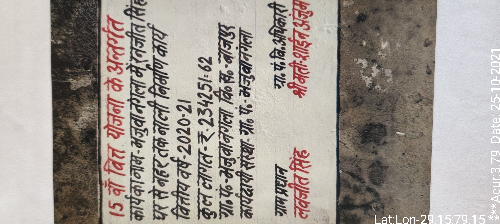 15 वाँ वित्त योजना के अन्तर्गत
कार्य का नाम- मजुवानंगला में रणजीत सिंह
घर से नहर तक नाली निर्माण कार्य
वित्तीय वर्ष-2020-21
कुल लागत- रु. 234251.62
ग्रा० पं०- मजुवानंगला वि.ख.
कार्यदायी संस्था- ग्रा० पं०- मजुवानंगला
ग्राम प्रधान
लवजीत सिंह
ग्रा. पं. वि. अधिकारी
श्रीमती- शाईन अंजुम
Lat:Lon-29.15:79.15
Date: 25-10-2021